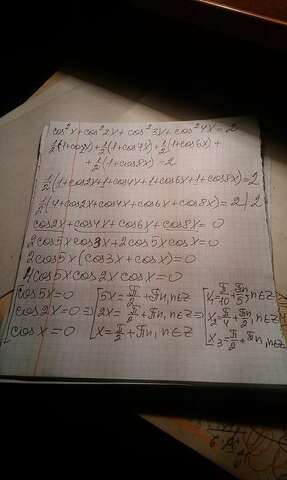 cos²x+cos²2x+cos²3x+cos²4x=2
½(1+cos2x)+½(1+cos4x)+½(1+cos6x)+
+½(1+cos8x)=2
½(1+cos2x+1+cos4x+1+cos6x+1+cos8x)=2
½(4+cos2x+cos4x+cos6x+cos8x)=2|·2
cos2x+cos4x+cos6x+cos8x=0
2cos5xcos3x+2cos5xcosx=0
2cos5x(cos3x+cosx)=0
4cos5xcos2xcosx=0
[cos5x=0 [5x=π/2+πn,n∈Z [x₁=π/10+πn/5,n∈Z
[cos2x=0 ⇒ [2x=π/2+πn,n∈Z ⇒ [x₂=π/4+πn/2,n∈Z
[cosx=0 [x=π/2+πn,n∈Z [x₃=π/2+πn,n∈Z